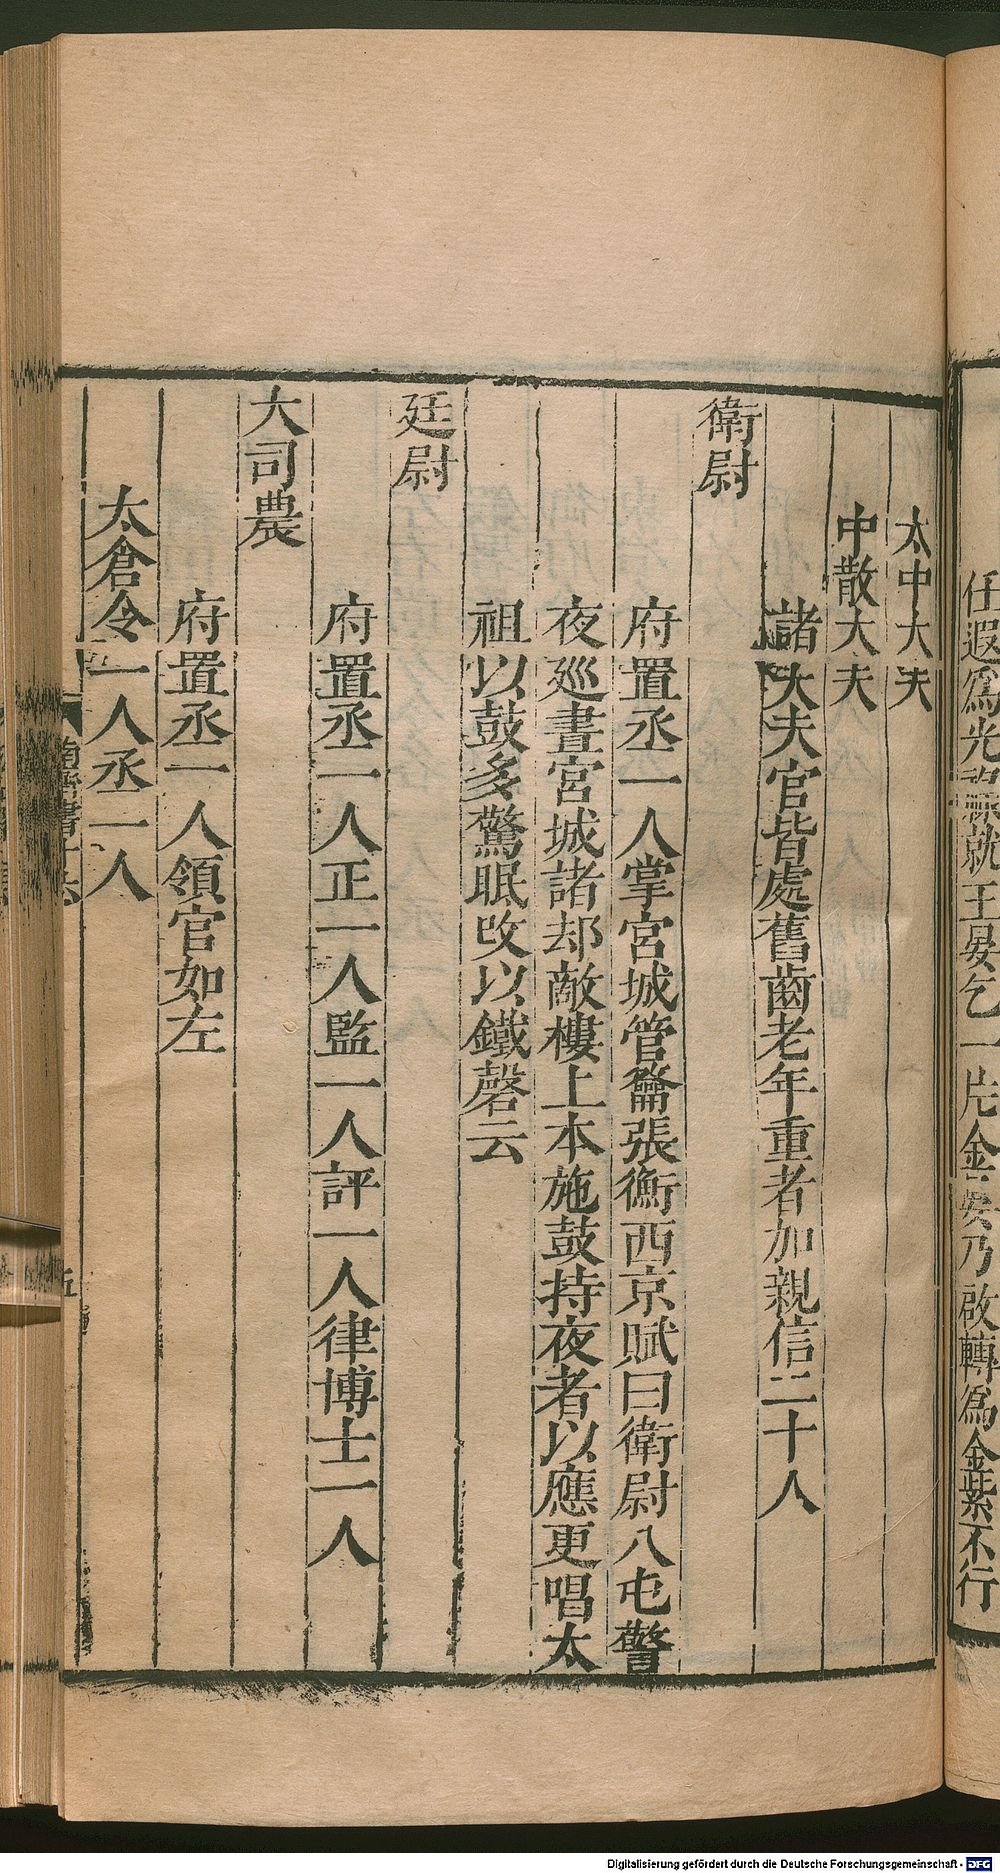 任遐爲光祿就王晏乞一片金晏乃啟轉爲金紫不行
太中大夫
中散大夫
諸大夫官皆處舊齒老年重者加親信二十人
衛尉
府置丞一人掌宮城管籥張衡西京賦曰衛尉八屯警
夜廵晝宮城諸却敵樓上本施鼓持夜者以應更唱太
祖以鼓多驚眠改以鐵磬云
廷尉
府置丞一人正一人監一人評一人律博士一人
大司農
府置丞一人領官如左
太倉令一人丞一人
南齊書十六
五
Digitalisierung gefördert durch die Deutsche Forschungsgemeinschaft - DFG